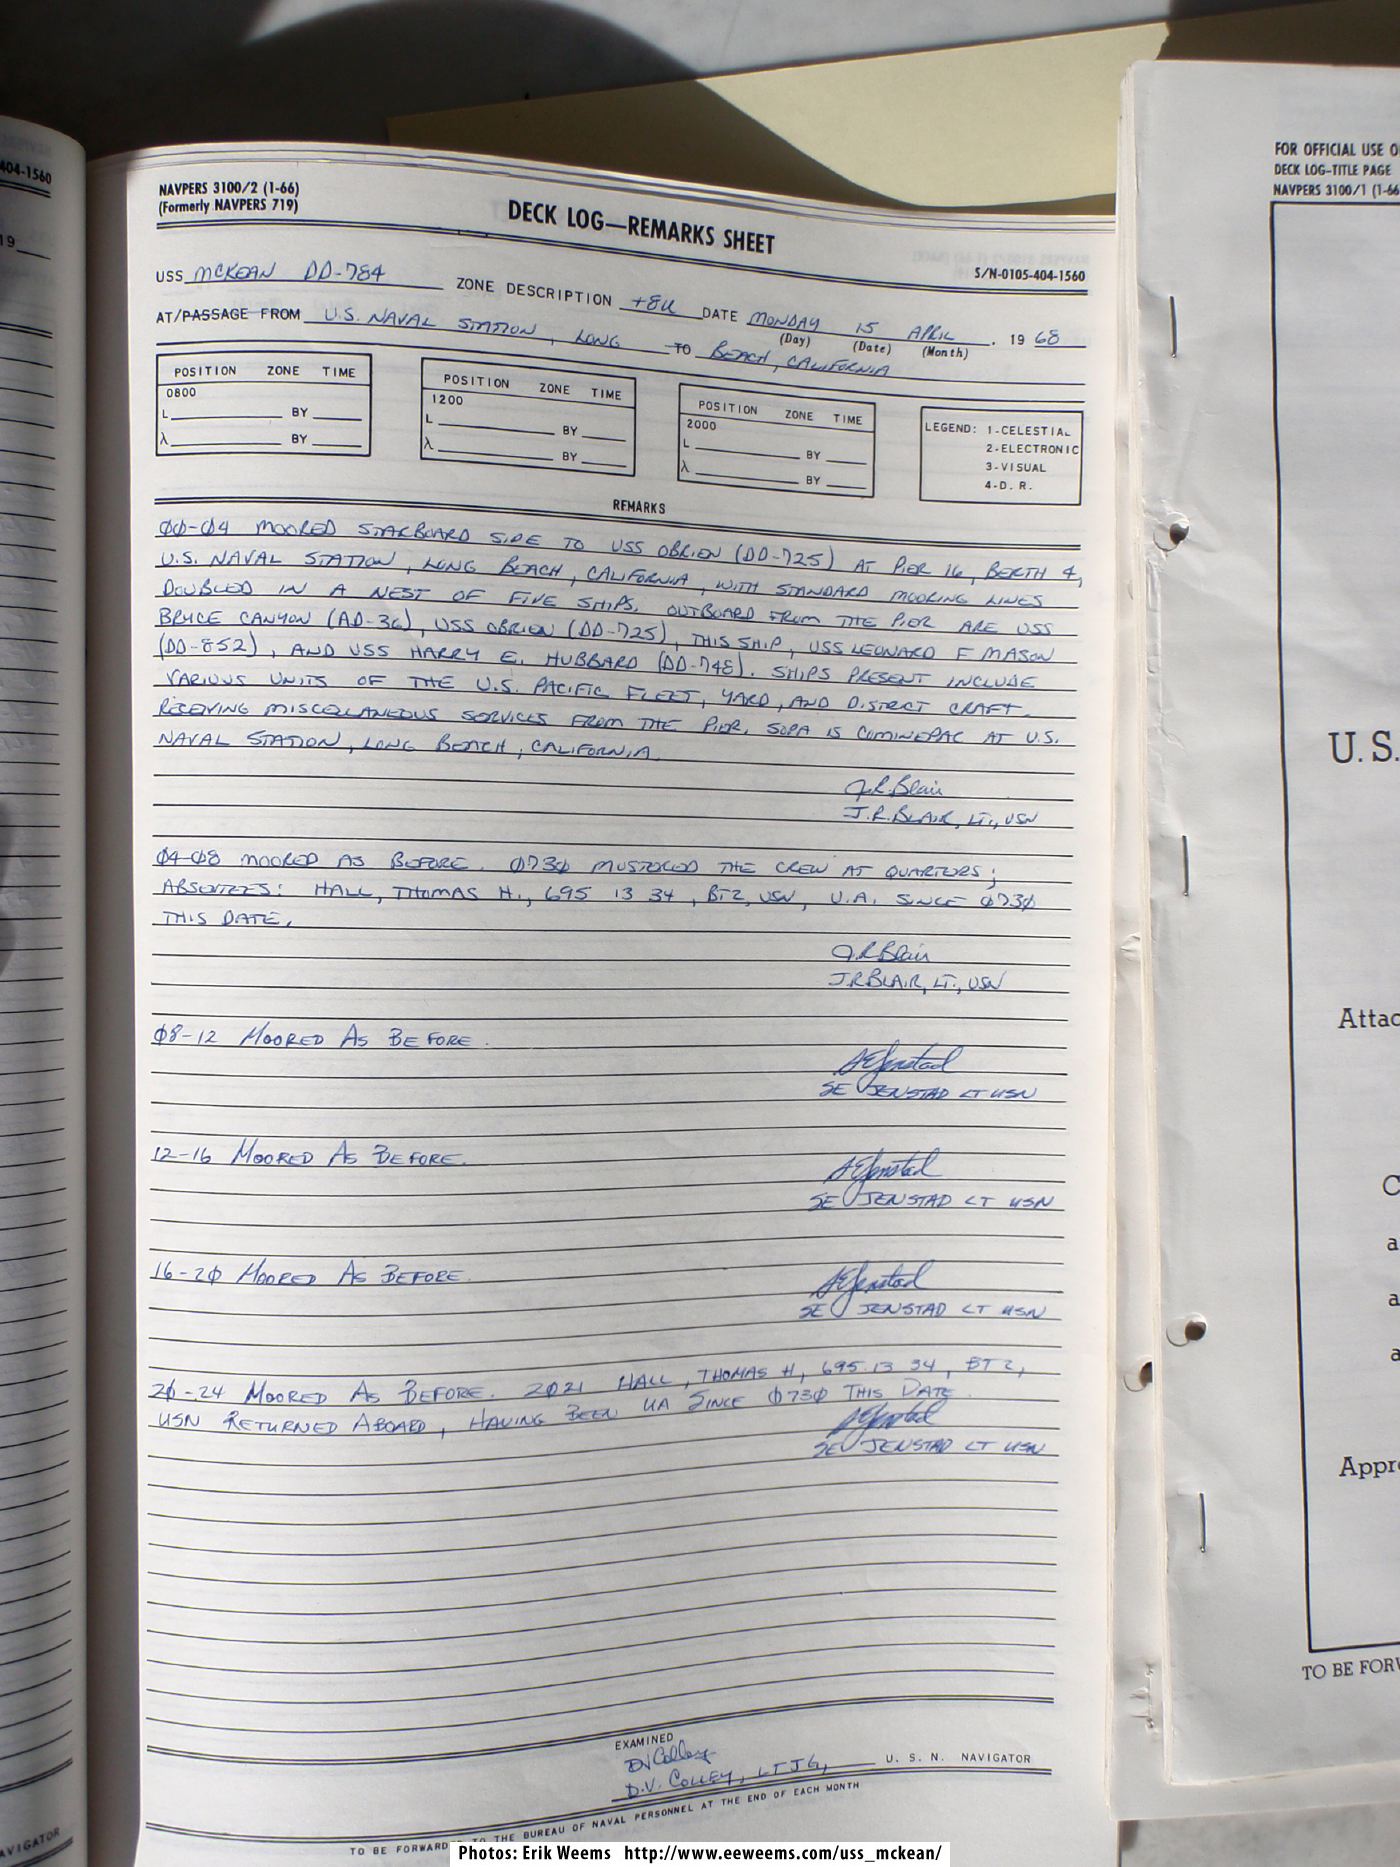 404-1560
19
NAVPERS 3100/2 (1-66)
(Formerly NAVPERS 719)
DECK LOG—REMARKS SHEET
S/N-0105-404-1560
USS MCKEAN DD-784 ZONE DESCRIPTION +8U DATE MONDAY 15 APRIL , 19 68
(Day) (Date) (Month)
AT/PASSAGE FROM U.S. NAVAL STATION, LONG TO BEACH, CALIFORNIA
POSITION ZONE TIME
0800
L BY
λ BY
POSITION ZONE TIME
1200
L BY
λ BY
POSITION ZONE TIME
2000
L BY
λ BY
LEGEND: 1-CELESTIAL
2-ELECTRONIC
3-VISUAL
4-D. R.
REMARKS
00-04 MOORED STARBOARD SIDE TO USS OBRIEN (DD-725) AT PIER 16, BERTH 4,
U.S. NAVAL STATION, LONG BEACH, CALIFORNIA, WITH STANDARD MOORING LINES
DOUBLED IN A NEST OF FIVE SHIPS. OUTBOARD FROM THE PIER ARE USS
BRYCE CANYON (AD-36), USS OBRIEN (DD-725), THIS SHIP, USS LEONARD F MASON
(DD-852), AND USS HARRY E. HUBBARD (DD-748). SHIPS PRESENT INCLUDE
VARIOUS UNITS OF THE U.S. PACIFIC FLEET, YARD, AND DISTRICT CRAFT.
RECEVING MISCELLANEOUS SERVICES FROM THE PIER. SOPA IS COMINEPAC AT U.S.
NAVAL STATION, LONG BEACH, CALIFORNIA.
J.R.Blair
J.R.BLAIR, LT., USN
04-08 MOORED AS BEFORE. 0730 MUSTERED THE CREW AT QUARTERS;
ABSENTEES: HALL, THOMAS H., 695 13 34, BT2, USN, U.A. SINCE 0730
THIS DATE.
J.R.Blair
J.R.BLAIR, LT., USN
08-12 MOORED AS BEFORE.
SEJenstad
SE JENSTAD LT USN
12-16 MOORED AS BEFORE.
SEJenstad
SE JENSTAD LT USN
16-20 MOORED AS BEFORE.
SEJenstad
SE JENSTAD LT USN
20-24 MOORED AS BEFORE. 2021 HALL, THOMAS H, 695 13 34, BT2,
USN RETURNED ABOARD, HAVING BEEN UA SINCE 0730 THIS DATE.
SEJenstad
SE JENSTAD LT USN
EXAMINED
DVColley
D.V. COLLEY, LTJG, U. S. N. NAVIGATOR
TO BE FORWARDED TO THE BUREAU OF NAVAL PERSONNEL AT THE END OF EACH MONTH
AVIGATOR
FOR OFFICIAL USE O
DECK LOG-TITLE PAGE
NAVPERS 3100/1 (1-66
U.S.
Attac
C
a
a
a
Appr
TO BE FORW
Photos: Erik Weems http://www.eeweems.com/uss_mckean/